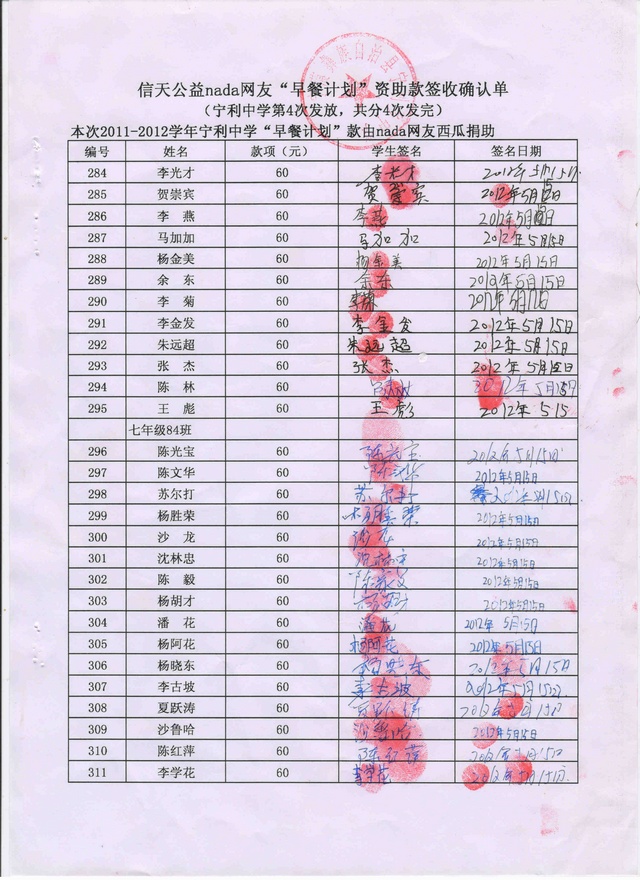 信天公益nada网友“早餐计划”资助款签收确认单
（宁利中学第4次发放，共分4次发完）
本次2011-2012学年宁利中学“早餐计划”款由nada网友西瓜捐助
编号 姓名 款项（元） 学生签名 签名日期
284 李光才 60 李光才
285 贺崇宾 60 贺崇宾 2012年5月15日
286 李 燕 60 李燕 2012年5月15日
287 马加加 60 马加加 2012年5月15日
288 杨金美 60 杨金美 2012年5月15日
289 余 东 60 余东 2012年5月15日
290 李 菊 60 李菊
291 李金发 60 李金发 2012年5月15日
292 朱远超 60 朱远超 2012年5月15日
293 张 杰 60 张杰 2012年5月15日
294 陈 林 60 2012年5月15日
295 王 彪 60 王彪 2012年5.15
七年级84班
296 陈光宝 60 陈光宝 2012年5月15日
297 陈文华 60 陈文华 2012年5月15日
298 苏尔打 60 苏尔打
299 杨胜荣 60 杨胜荣 2012年5月15日
300 沙 龙 60 沙龙 2012年5月15日
301 沈林忠 60 2012年5月15日
302 陈 毅 60 陈毅 2012年5月15日
303 杨胡才 60 2012年5月15日
304 潘 花 60 潘花 2012年5月15日
305 杨阿花 60 杨阿花 2012年5月15日
306 杨晓东 60 2012年5月15日
307 李古坡 60 李古坡 2012年5月15日
308 夏跃涛 60
309 沙鲁哈 60 沙鲁哈 2012年5月15日
310 陈红萍 60 陈红萍
311 李学花 60 李学花